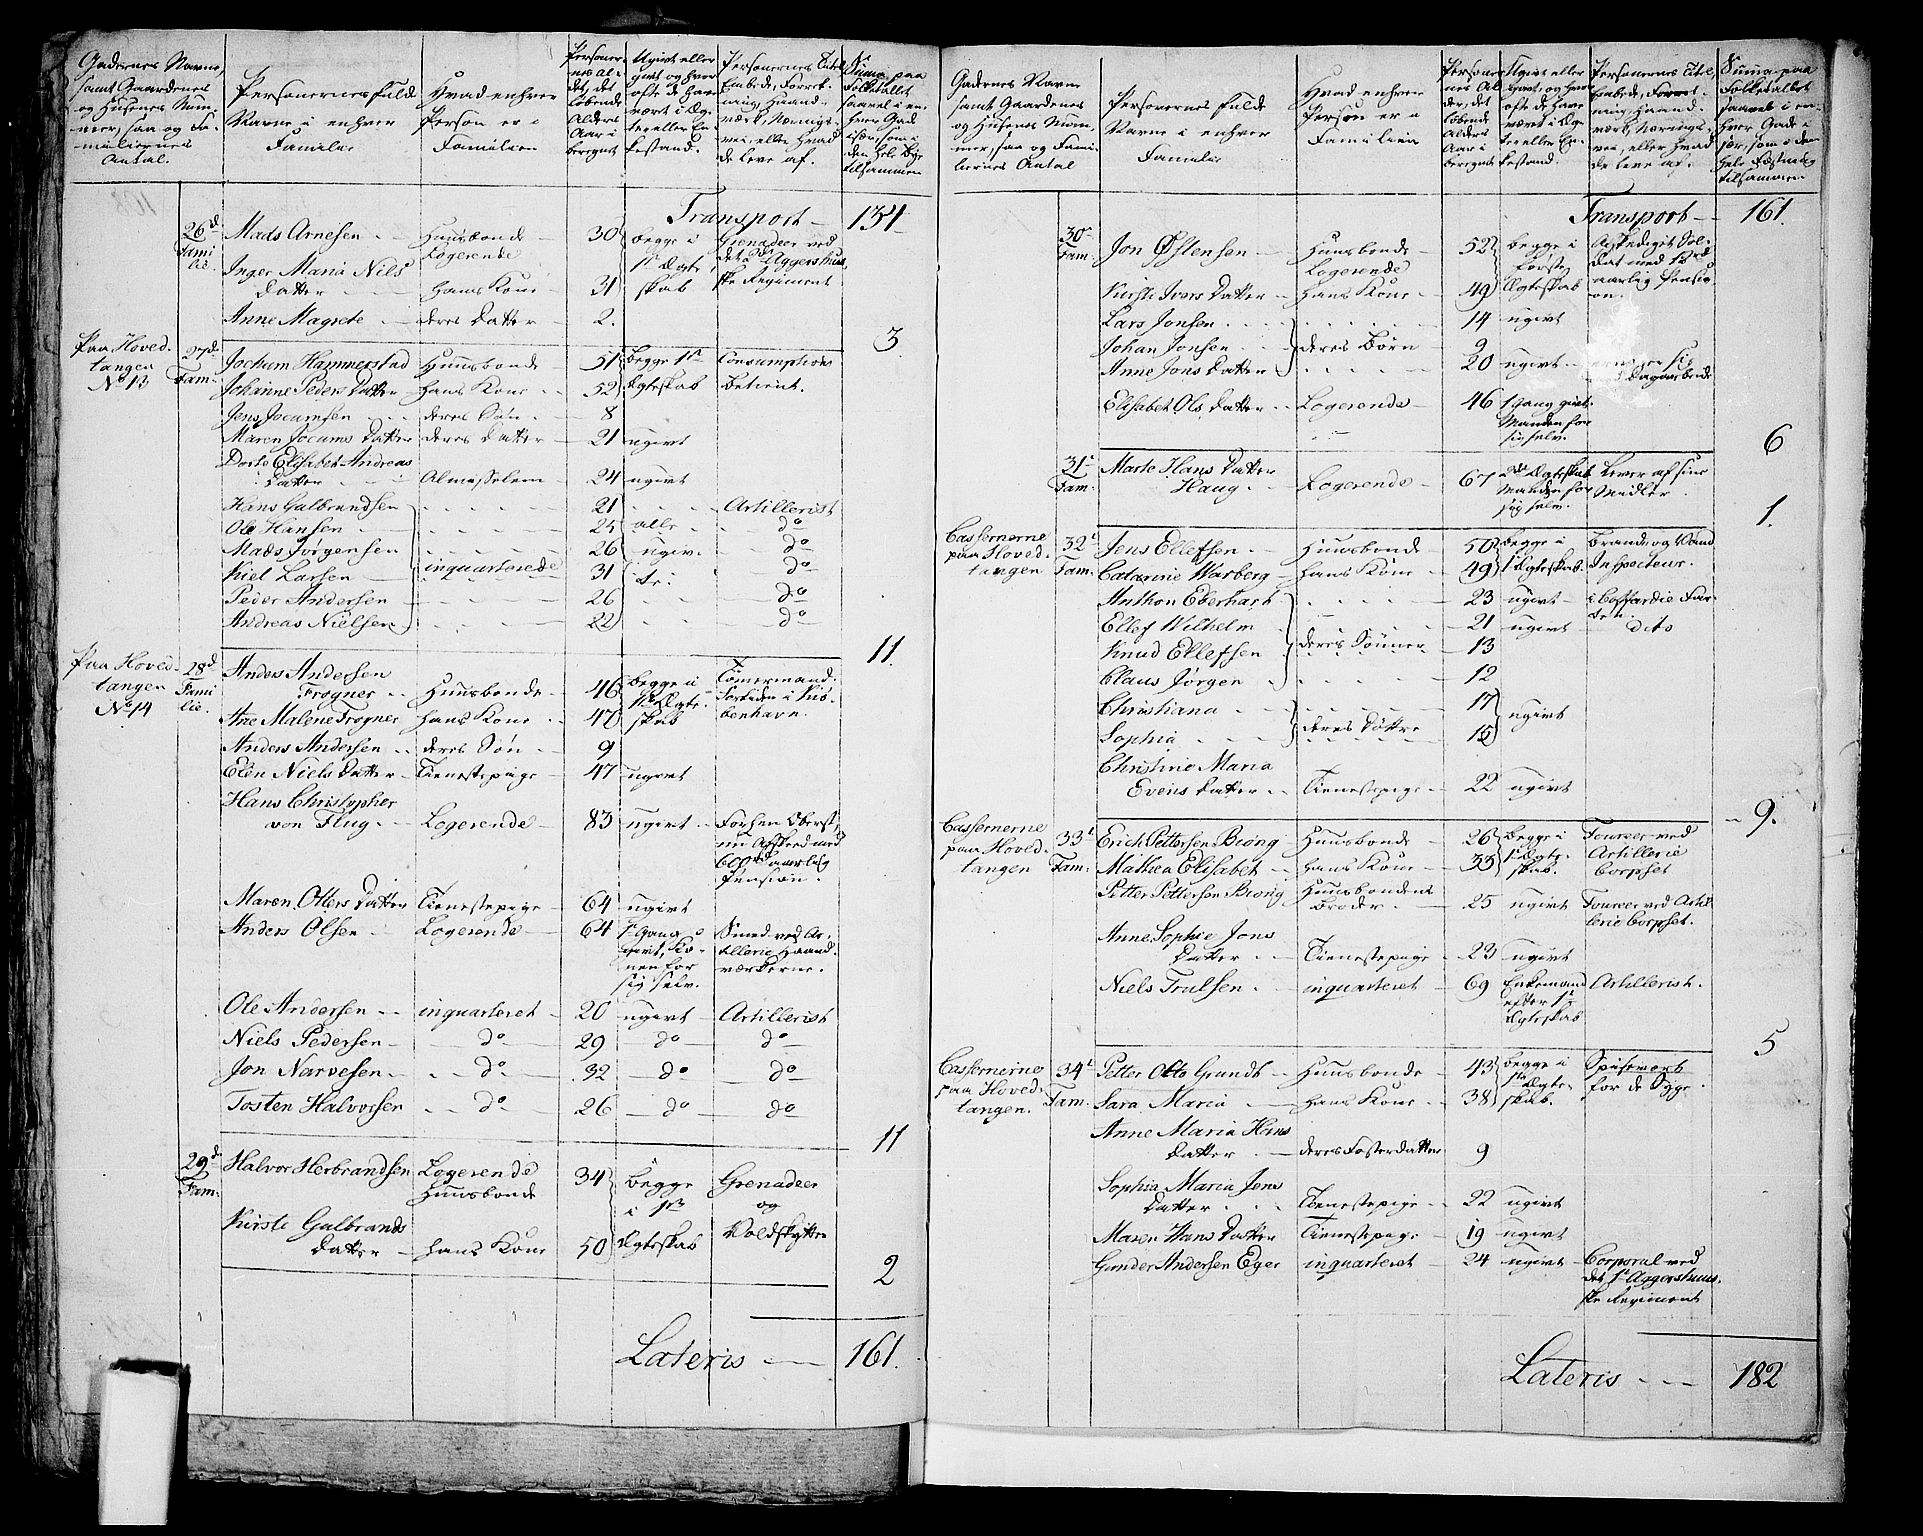 Gadernes Navne,
samt Gaardenes
og Husenes Num-
mer, saa og Fa-
miliernes
Antal.
Personernes fulde
Navne i enhver
Familie
Hvad enhver
Person er i
Familien
Personer-
nes Al-
der, det
løbende
Alders
Aar i
beregnet
Ugivt eller
givt og hvor
ofte de have
vært i Æg-
teskab eller En-
kestand.
Personernes Titel,
Embede, Forret-
ning, Haand-
værk, Nærings-
vei, eller hvad
de leve af.
Suma paa
Folketallet
saavel i en-
hver Gade
især, som i
den hele Bye
tilsammen
Transport — 134
26d Familie. Mads Arnesen — Huusbonde Logerende 30 begge i 1ste Ægteskab Grenadeer ved det 2d Aggershuuske Regiment
Inger Maria Niels Datter — hans Kone — 31
Anne Magrete — deres Datter — 2.
3
Paa Hovedtangen No 13 27de Fam: Jochum Hammerstad Huusbonde — 51 begge 1ste Ægteskab Consumptions betient.
Johanne Peders Datter hans Kone — 52
Jens Jocumsen — deres Søn — 8
Maren Jocums Datter deres Datter — 21 ugivt
Dorte Elisabet Andreas Datter — Almisselem — 24 ugivt
Hans Gulbrandsen 21 Artillerist
Ole Hansen 25 alle do
Mads Jørgensen 26 ugiv- do
Kiel Larsen inquarterede 31 te do
Peder Andersen 26 do
Andreas Nielsen 22 do
11.
Paa Hovedtangen No 14 28de Familie. Anders Andersen Frogner — Huusbonde — 46 begge i 1ste Ægteskab Tømermand. forhen i Kiøbenhavn.
Ane Malene Frogner hans Kone — 40
Anders Andersen — deres Søn — 9
Elen Niels Datter — Tienestepige — 47 ugivt
Hans Christopher von Flug. — Logerende — 83 ugivt — Forhen Oberst, nu Afskeed med 600rd aarlig Pension.
Maren Ollers Datter Tienestepige — 64 ugivt
Anders Olsen — Logerende — 64 1 Gang givt, Konen for sig selv. Smed ved Artillerie Haandværkerne.
Ole Andersen — inquarteret — 20 ugivt — Artillerist
Niels Pedersen — do — 29 — do — do
Jon Narvesen — do — 32 — do — do
Tosten Halvorsen — do — 26 — do — do
11
29de Fam: Halvor Herbrandsen Logerende Huusbonde 34 begge i 1ste Ægteskab Grenadeer og Voldskytter
Kirste Gulbrands Datter — hans Kone 50
2
Lateris — 161.
Gadernes Navne
samt Gaardenes
og Husenes Num-
mer, saa og Fami-
liernes Antal
Personernes fulde
Navne i enhver
Familie
Hvad enhver
Person er i
Familien
Personer-
nes Al-
der, det
løbende
Alders
Aar i
beregnet
Ugivt eller
givt, og hvor
ofte de have
været i Æg-
teskab eller En-
kestand.
Personernes Titel,
Embede, Forret-
ning, Haand-
værk, Nærings-
vei, eller hvad
de leve af.
Summa paa
Folketallet
saavel i en-
hver Gade i
sær, som i den
hele Fæstning
tilsammen
Transport — 161.
30te Fam: Jon Østensen — Huusbonde Logerende 52 begge i første Ægteskab Afskediget Soldat med 12rd aarlig Pension.
Kirsti Ivers Datter — hans Kone — 49
Lars Jonsen 14 ugivt
Johan Jonsen deres Børn — 9
Anne Jons Datter 20 ugivt — sig Dagarbeide
Elisabet Ols Datter — Logerende — 46 1 Gang givt. Manden for sig selv.
6
31te Fam: Marte Hans Datter Haug. — Logerende — 67 2de Ægteskab Manden for sig selv. Lever af sine Midler.
1.
Cassernerne paa Hovedtangen 32te Fam: Jens Ellefsen — Huusbonde — 50 begge i 1ste Ægteskab. Brand og Vand Inspecteur.
Catarine Warberg — hans Kone — 49
Anthon Eberhart 23 ugivt — i Coffardie Farten.
Ellef Wilhelm 21 ugivt — dito
Knud Ellefsen deres Sønner — 13
Claus Jørgen 12
Christiana 17 ugivt
Sophia deres Døttre 15
Christine Maria Evens Datter — Tienestepige — 22 ugivt
9.
Cassernerne paa Hovedtangen 33te Fam: Erich Pettersen Biong Huusbonde — 26 begge i 1ste Ægteskab. Foureer ved Artillerie Corpset
Mathea Elisabet — hans Kone — 33
Petter Pettersen Biong Huusbondens Broder — 25 ugivt Foureer ved Artillerie Corpset.
Anne Sophie Jons Datter — Tienestepige — 23 ugivt
Niels Trulsen — inquarteret — 69 Enkemand efter 1ste Ægteskab Artillerist.
5
Cassernerne paa Hovedtangen. 34te Fam: Petter Otto Grundt — Huusbonde — 43 begge i 1ste Ægteskab. Spisevært for de Syge
Sara Maria — hans Kone — 38
Anne Maria Hans Datter — deres Fosterdatter 9
Sophia Maria Jens Datter — Tienestepige — 22 ugivt
Maren Hans Datter Tienestepige — 19 ugivt
Gunder Andersen Eger inquarteret — 24 ugivt — Corporal ved det 1ste Aggershuuske Regiment
Lateris — 182